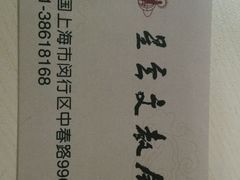 星云文教
国上海市闵行区中春路99
1-38618168